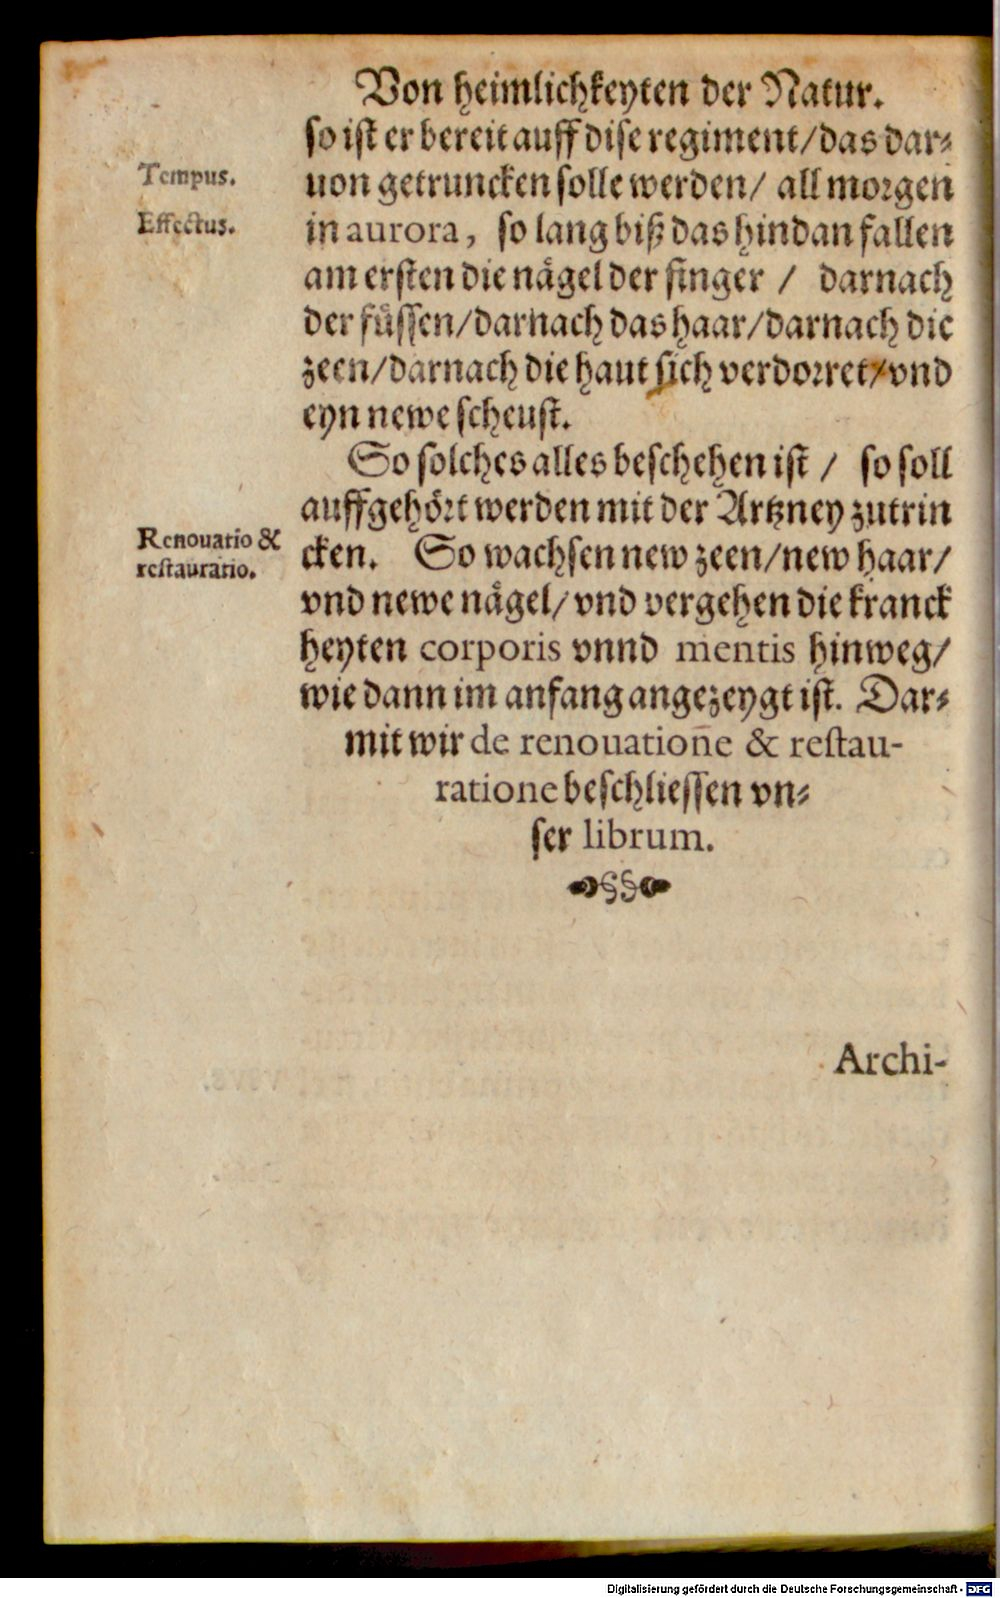 Von heimlichkeyten der Natur.
so ist er bereit auff dise regiment/das dar⸗
Tempus.
uon getruncken solle werden/ all morgen
Effectus.
in aurora, so lang biß das hindan fallen
am ersten die nägel der finger / darnach
der füssen/darnach das haar/darnach die
zeen/darnach die haut sich verdorret/vnd
eyn newe scheust.
So solches alles beschehen ist / so soll
auffgehört werden mit der Artzney zutrin
Renouatio &
restauratio.
cken. So wachsen new zeen/new haar/
vnd newe nägel/vnd vergehen die kranck
heyten corporis vnnd mentis hinweg/
wie dann im anfang angezeygt ist. Dar⸗
mit wir de renouatioñe & restau-
ratione beschliessen vn⸗
ser librum.
Archi-
Digitalisierung gefördert durch die Deutsche Forschungsgemeinschaft - DFG